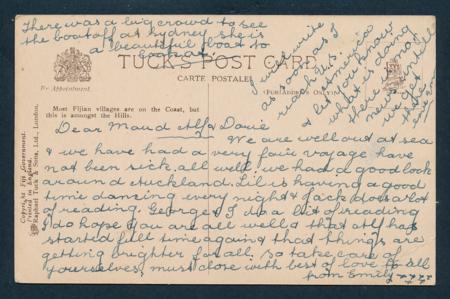 There was a big crowd to see
the boat off at Sydney she is
a beautiful boat to
look at.
TUCK'S POST CARD
CARTE POSTALE
By Appointment.
(FOR ADDRESS ONLY)
Most Fijian villages are on the Coast, but
this is amongst the Hills.
Copyright Fiji Government.
Printed in England.
Raphael Tuck & Sons, Ltd., London.
I will write
as soon as I
reach
America
& let you know
what is doing
there
news
we get
Dear Maud Alf & Davie
We are well out at sea
& we have had a very fair voyage have
not been sick. all well. we had a good look
around Auckland. Lil is having a good
time dancing every night & Jack does a lot
of reading. George & I do a bit of reading
I do hope you are all well & that Alf has
started full time again & that things are
getting brighter for all, so take care of
yourselves, must close with best of love to all
from Emily